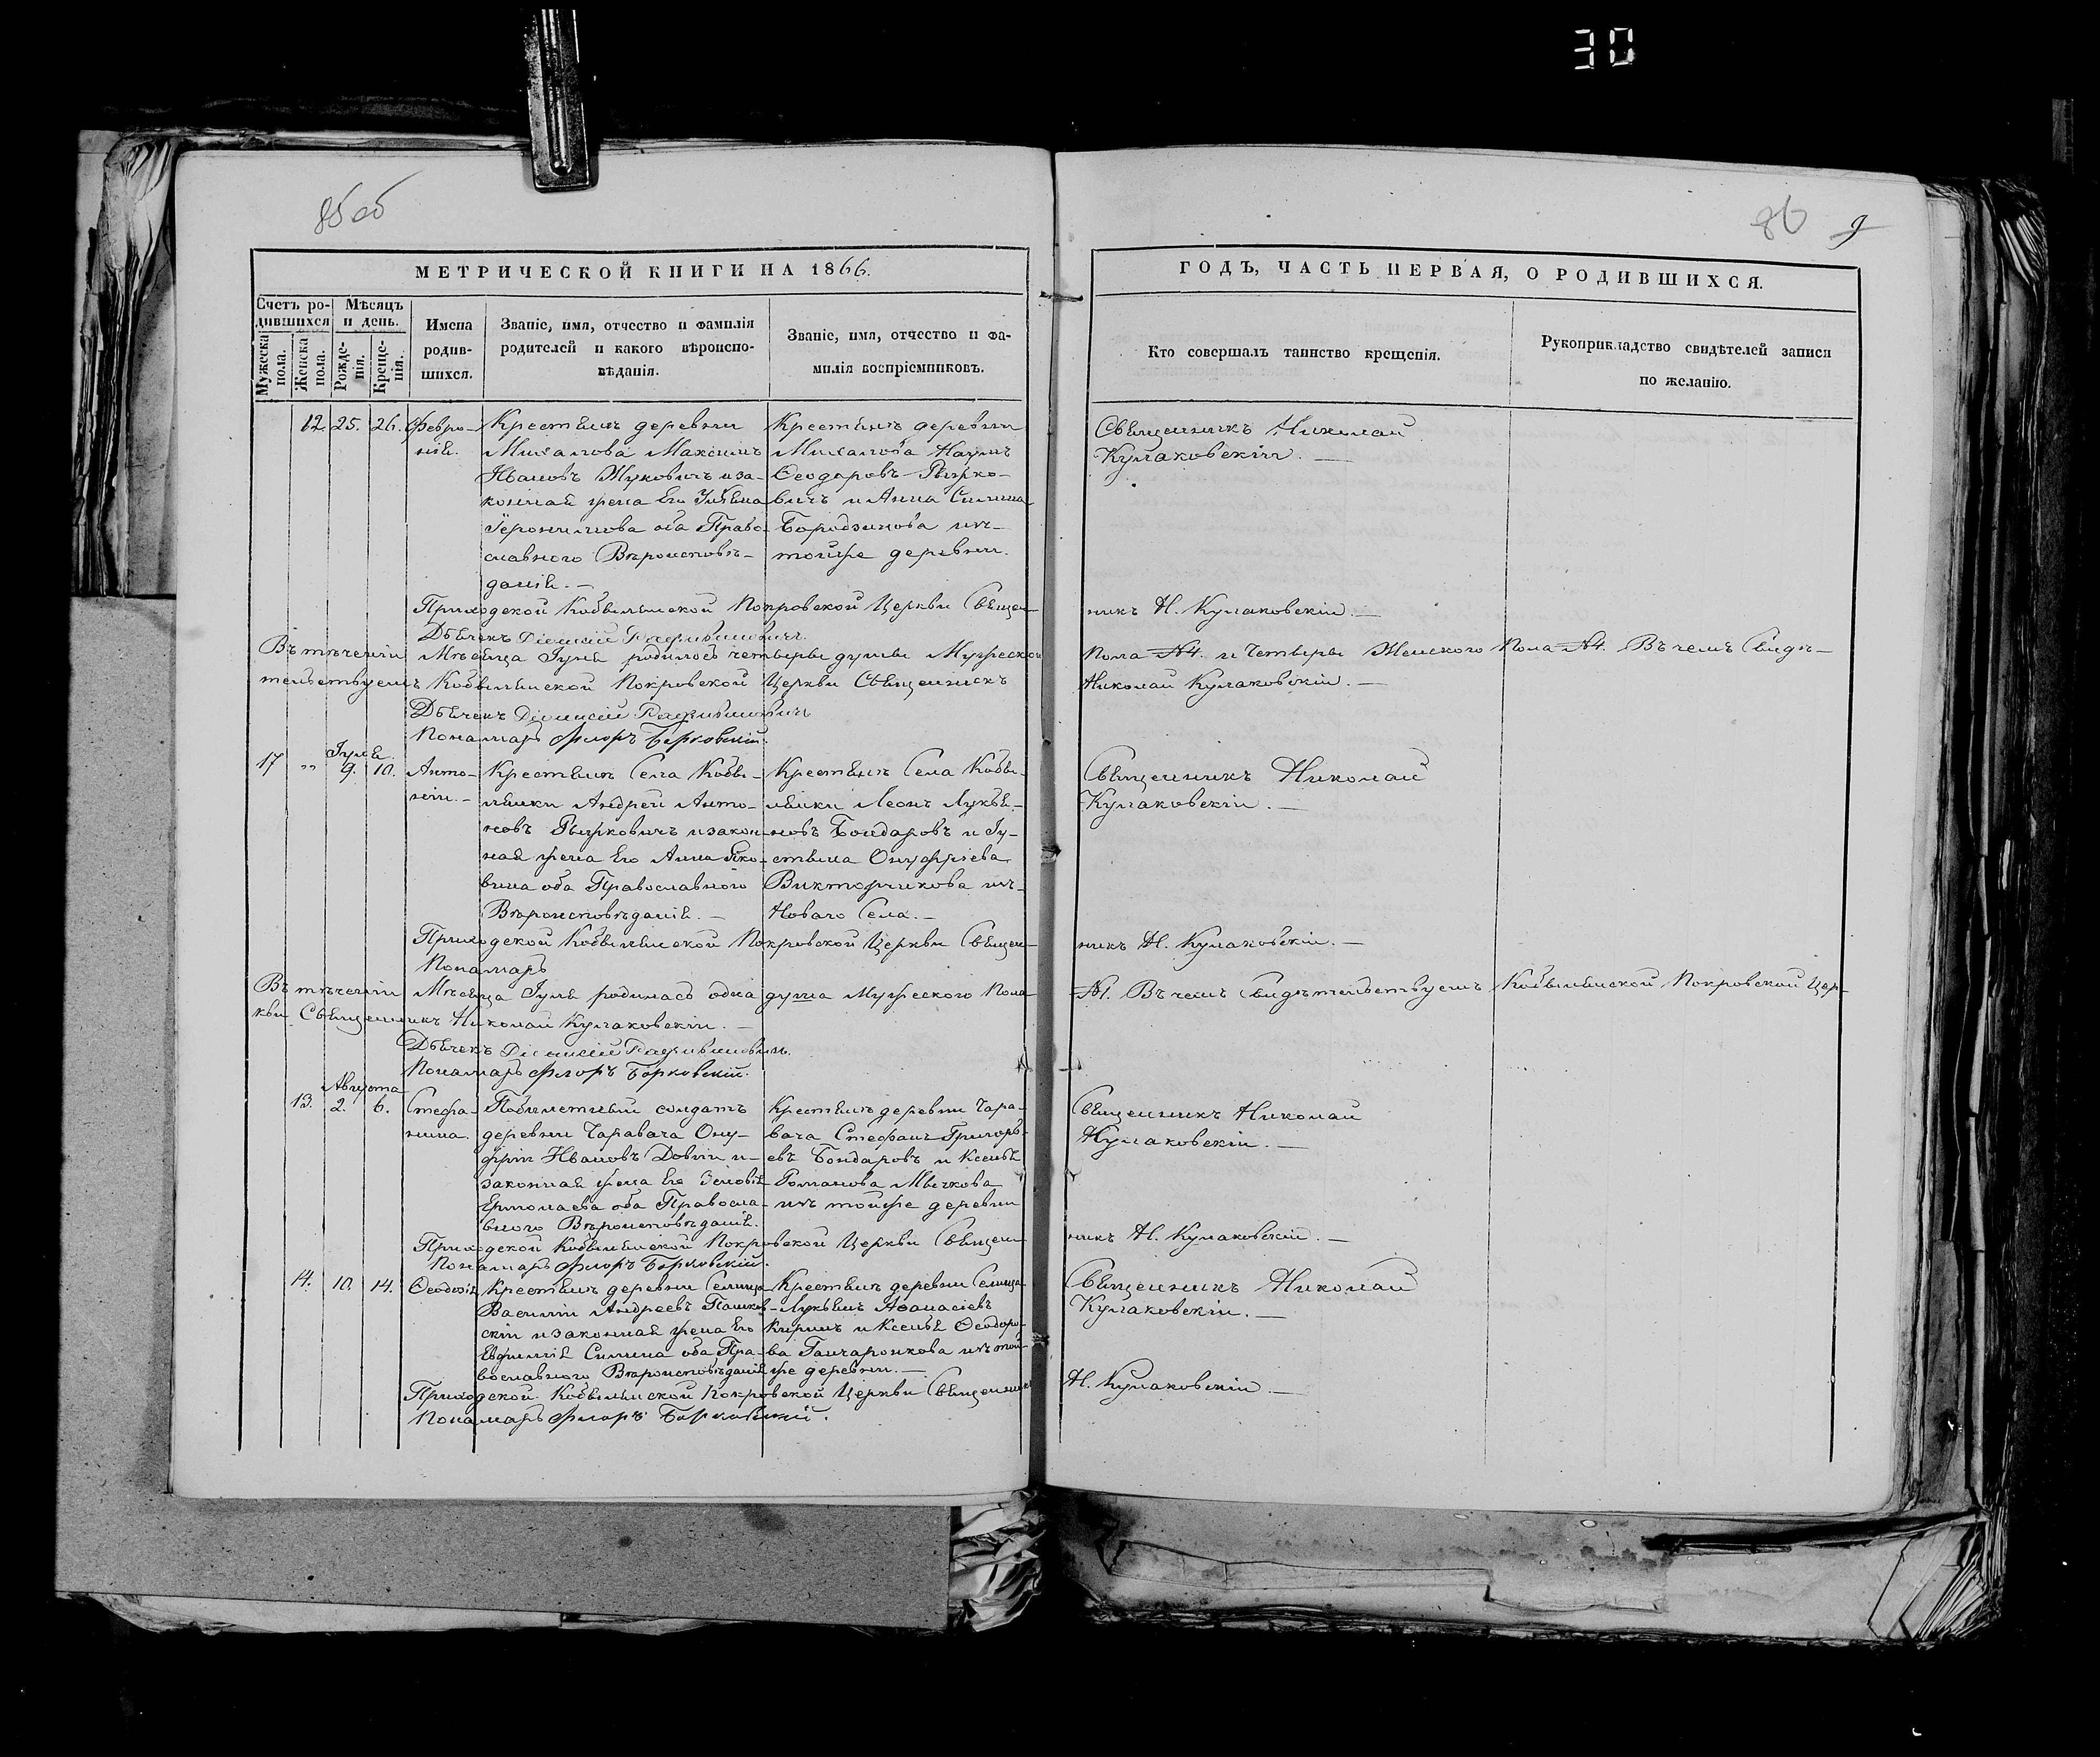 30
85 об
86 9
МЕТРИЧЕСКОЙ КНИГИ НА 1866.
Счетъ родившихся
Мѣсяцъ и день.
Мужеска пола.
Женска пола.
Рожденія.
Крещенія.
Имена родившихся.
Званіе, имя, отчество и фамилія родителей и какого вѣроисповѣданія.
Званіе, имя, отчество и фамилія воспріемниковъ.
ГОДЪ, ЧАСТЬ ПЕРВАЯ, О РОДИВШИХСЯ.
Кто совершалъ таинство крещенія.
Рукоприкладство свидѣтелей записи по желанію.
12. 25. 26.
Февро-
нія.
Крестьянъ деревни
Михалова Максимъ
Ивановъ Жуковичъ и за-
конная жена Его Ульяна
Іеронимова оба Право-
славного Вѣроисповѣ-
данія. —
Крестьянъ деревни
Михалова Наумъ
Ѳеодоровъ Рыжко-
вичъ и Анна Силина
Бородзинова изъ
тойже деревни.
Священникъ Николай
Кулаковскій. —
Приходской Кобыльянской Покровской Церкви Священ-
никъ Н. Кулаковскій. —
Дьячекъ Діонисій
Въ теченіи Мѣсяца Іуня родилось четыре душы Мужеского
Пола №4. и Четыре Женского Пола №4. Въ чемъ Свидѣ-
тельствуемъ Кобыльянской Покровской Церкви Священникъ
Николай Кулаковскій. —
Дьячекъ Діонисій
Понамарь Флоръ Борковскій.
Іуля
17 „ 9. 10.
Анто-
ній. —
Крестьянъ Села Кобы-
лянки Андрей Анто-
новъ Рыжковичъ и закон-
ная жена Его Анна Яко-
влева оба Православного
Вѣроисповѣданія. —
Крестьянъ Села Кобы-
лянки Леонъ Лукья-
новъ Бондаровъ и Іу-
стына Онуфріева
Викторчикова изъ
Новаго Села. —
Священникъ Николай
Кулаковскій. —
Приходской Кобыльянской Покровской Церкви Священ-
никъ Н. Кулаковскій. —
Понамарь
Въ теченіи Мѣсяца Іуля родилась одна душа Мужеского Пола
№1. Въ чемъ Свидѣтельствуемъ Кобыльянской Покровской Цер-
кви Священникъ Николай Кулаковскій. —
Дьячекъ Діонисій
Понамарь Флоръ Борковскій.
Августа
13. 2. 6.
Стефа-
нина.
Побилетный солдатъ
деревни Чаравача Ону-
фрій Ивановъ Довгій и
законная жена Его Зеновія
Ермолаева оба Правосла-
вного Вѣроисповѣданія.
Крестьянъ деревни Чара-
вача Стефанъ Григорь-
евъ Бондаровъ и Ксенья
Романова Мычкова
изъ тойже деревни
Священникъ Николай
Кулаковскій. —
Приходской Кобыльянской Покровской Церкви Священ-
никъ Н. Кулаковскій. —
Понамарь Флоръ Борковскій.
14. 10. 14.
Ѳеодосія
Крестьянъ деревни Селища
Василій Андреевъ Пашков-
скій и законная жена Его
Евфимія Силина оба Пра-
вославного Вѣроисповѣданія
Крестьянъ деревни Селища
Лукьянъ Аѳанасіевъ
Киринъ и Ксенья Ѳеодоро-
ва Ганчаронкова изъ той-
же деревни. —
Священникъ Николай
Кулаковскій. —
Приходской Кобыльянской Покровской Церкви Священникъ
Н. Кулаковскій. —
Понамарь Флоръ Борковскій.